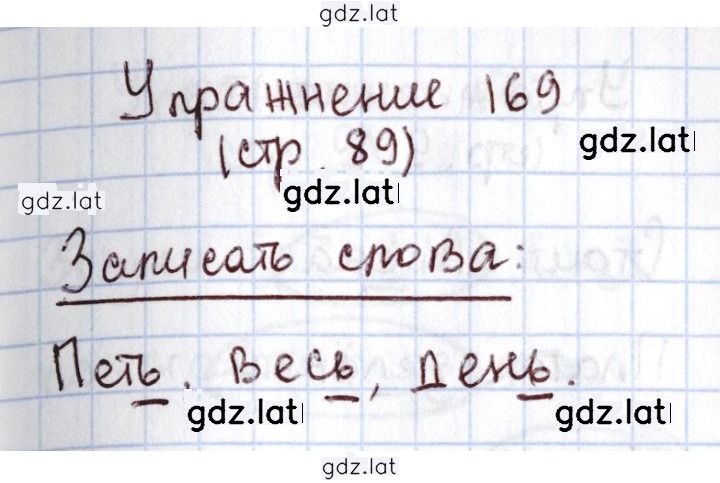 gdz.lat
Упражнение 169
(стр. 89)
gdz.lat
gdz.lat
gdz.lat
Записать слова:
Петь. Весь, День.
gdz.lat
gdz.lat
gdz.lat